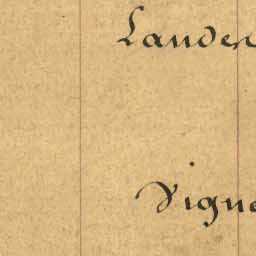 Lander
Signe